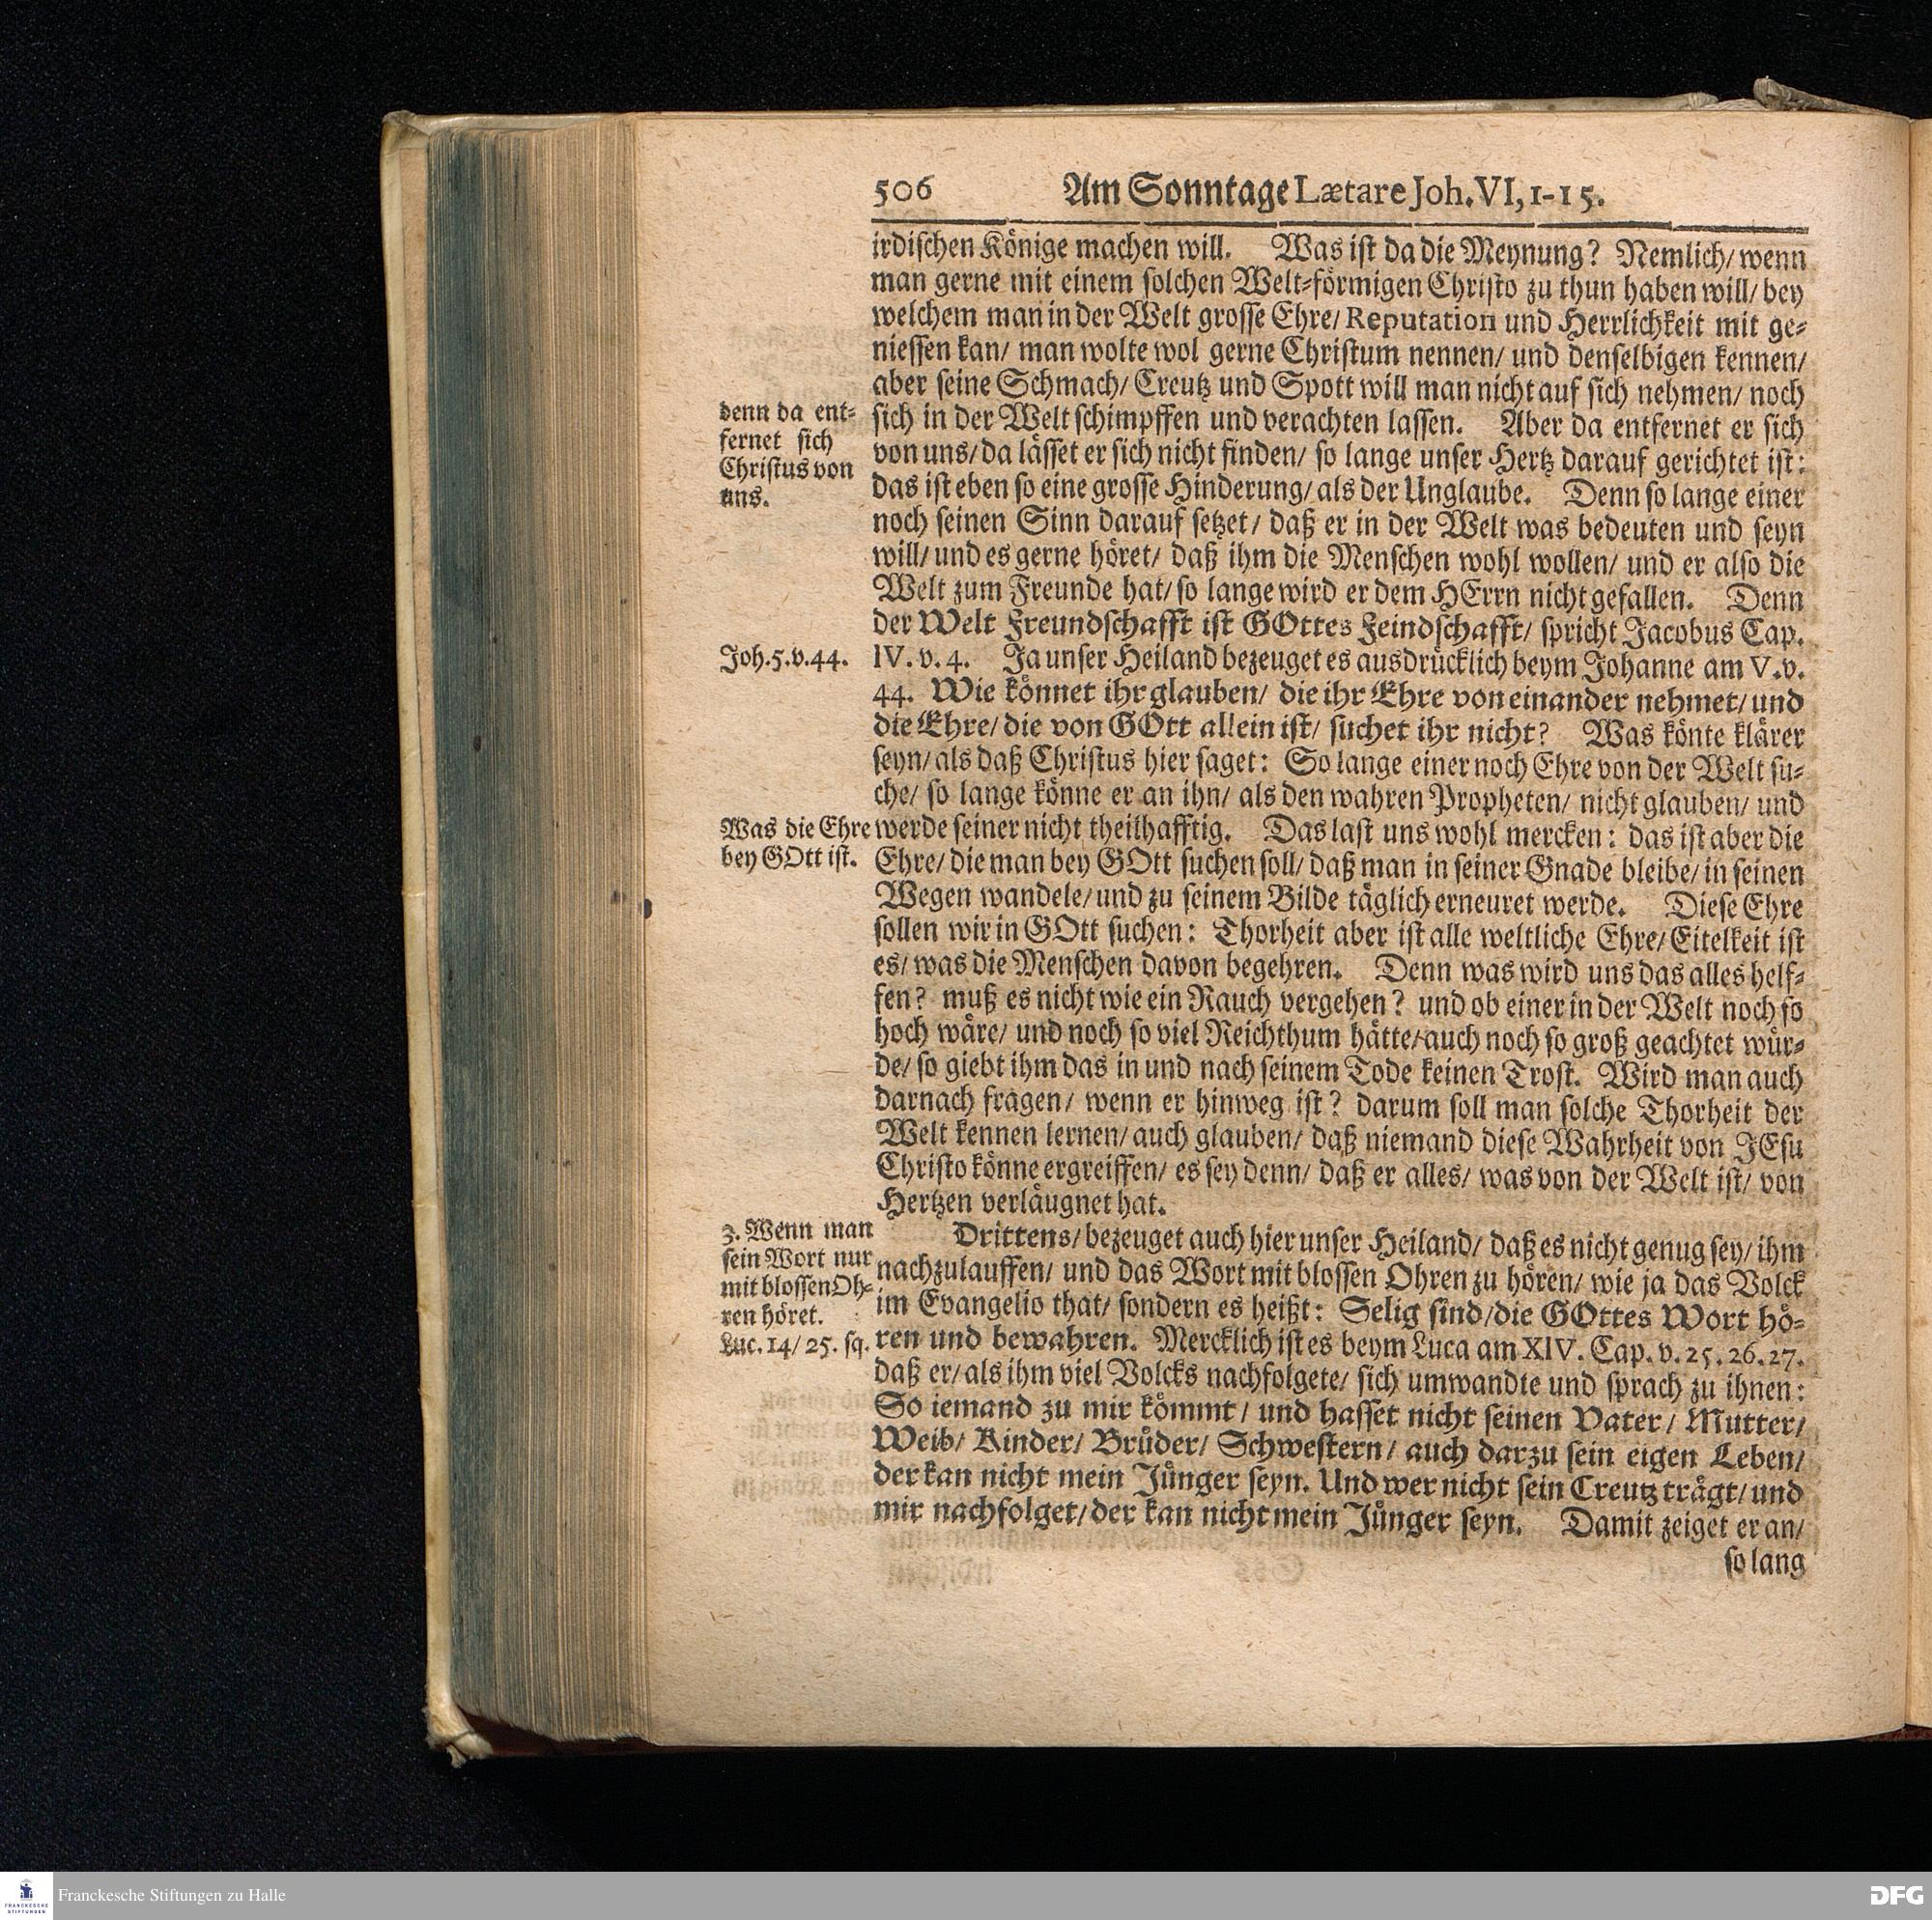 506 Am Sonntage Lætare Joh. VI, 1-15.
irdischen Könige machen will. Was ist da die Meynung? Nemlich/ wenn
man gerne mit einem solchen Welt-förmigen Christo zu thun haben will/ bey
welchem man in der Welt grosse Ehre/ Reputation und Herrlichkeit mit ge-
niessen kan/ man wolte wol gerne Christum nennen/ und denselbigen kennen/
aber seine Schmach/ Creutz und Spott will man nicht auf sich nehmen/ noch
denn da ent-
fernet sich
Christus von
uns.
sich in der Welt schimpffen und verachten lassen. Aber da entfernet er sich
von uns/ da lässet er sich nicht finden/ so lange unser Hertz darauf gerichtet ist:
das ist eben so eine grosse Hinderung/ als der Unglaube. Denn so lange einer
noch seinen Sinn darauf setzet/ daß er in der Welt was bedeuten und seyn
will/ und es gerne höret/ daß ihm die Menschen wohl wollen/ und er also die
Welt zum Freunde hat/ so lange wird er dem HErrn nicht gefallen. Denn
der Welt Freundschafft ist GOttes Feindschafft/ spricht Jacobus Cap.
Joh. 5. v. 44.
IV. v. 4. Ja unser Heiland bezeuget es ausdrücklich beym Johanne am V. v.
44. Wie könnet ihr glauben/ die ihr Ehre von einander nehmet/ und
die Ehre/ die von GOtt allein ist/ suchet ihr nicht? Was könte klärer
seyn/ als daß Christus hier saget: So lange einer noch Ehre von der Welt su-
che/ so lange könne er an ihn/ als den wahren Propheten/ nicht glauben/ und
Was die Ehre
bey GOtt ist.
werde seiner nicht theilhafftig. Das last uns wohl mercken: das ist aber die
Ehre/ die man bey GOtt suchen soll/ daß man in seiner Gnade bleibe/ in seinen
Wegen wandele/ und zu seinem Bilde täglich erneuret werde. Diese Ehre
sollen wir in GOtt suchen: Thorheit aber ist alle weltliche Ehre/ Eitelkeit ist
es/ was die Menschen davon begehren. Denn was wird uns das alles helf-
fen? muß es nicht wie ein Rauch vergehen? und ob einer in der Welt noch so
hoch wäre/ und noch so viel Reichthum hätte/ auch noch so groß geachtet wür-
de/ so giebt ihm das in und nach seinem Tode keinen Trost. Wird man auch
darnach fragen/ wenn er hinweg ist? darum soll man solche Thorheit der
Welt kennen lernen/ auch glauben/ daß niemand diese Wahrheit von JEsu
Christo könne ergreiffen/ es sey denn/ daß er alles/ was von der Welt ist/ von
Hertzen verläugnet hat.
3. Wenn man
sein Wort nur
mit blossen Oh-
ren höret.
Luc. 14/ 25. sq.
Drittens/ bezeuget auch hier unser Heiland/ daß es nicht genug sey/ ihm
nachzulauffen/ und das Wort mit blossen Ohren zu hören/ wie ja das Volck
im Evangelio that/ sondern es heißt: Selig sind/ die GOttes Wort hö-
ren und bewahren. Mercklich ist es beym Luca am XIV. Cap. v. 25. 26. 27.
daß er/ als ihm viel Volcks nachfolgete/ sich umwandte und sprach zu ihnen:
So iemand zu mir kömmt/ und hasset nicht seinen Vater/ Mutter/
Weib/ Kinder/ Brüder/ Schwestern/ auch darzu sein eigen Leben/
der kan nicht mein Jünger seyn. Und wer nicht sein Creutz trägt/ und
mir nachfolget/ der kan nicht mein Jünger seyn. Damit zeiget er an/
so lang
FRANCKESCHE
STIFTUNGEN
Franckesche Stiftungen zu Halle
DFG